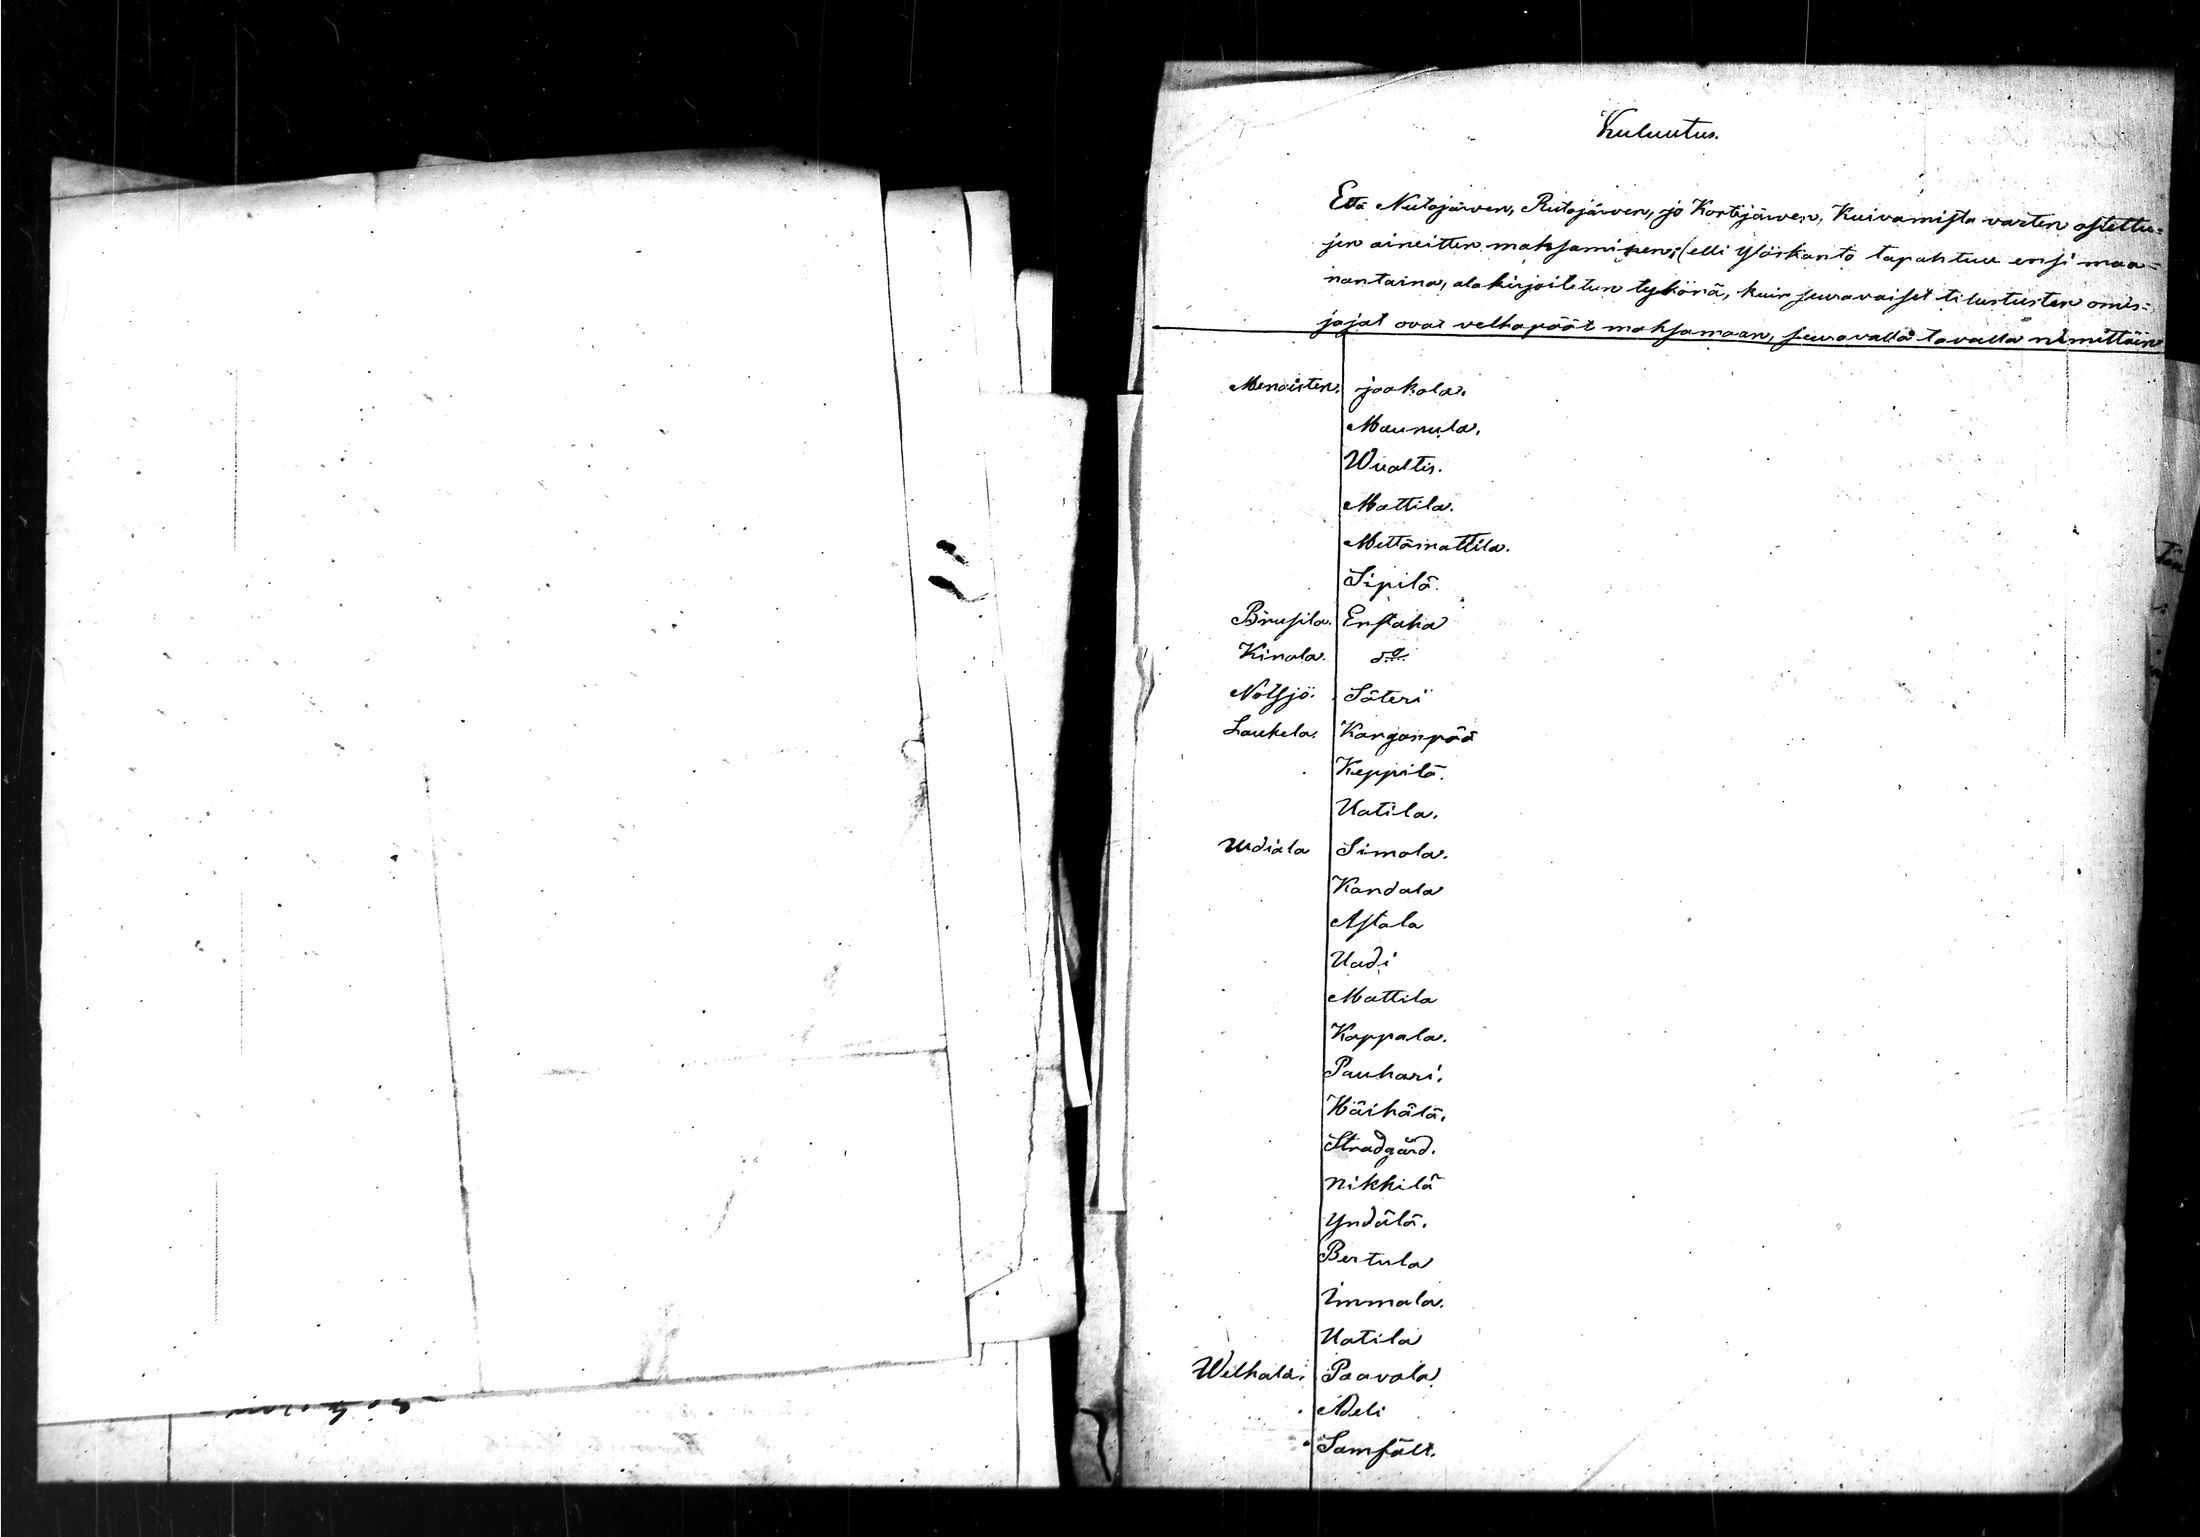 Kuluutus.
Että Nutajärven, Rutajärven, ja Kortejärven, Kuivamista varten ostettu=
jen aineitten maksaminen; (elli Ylöskanto tapahtuu ensi maa=
nantaina, alakirjoitetun tykönä, kuin seuravaiset tilustusten omis=
jajat ovat velkapäät maksamaan, seuravalla tavalla nimittäin
Menoisten. jaakola.
Maunula.
Wualtis.
Mattila.
Mettämattila.
Sipilä.
Brusila. Enstaka
Kinala. d:o
Notsjö. Säteri
Laukela. Kanganpää
Keppilä.
Uotila.
Urdiala Simola.
Kandala
Astala
Uudi
Mattila
Kappala.
Pauhari.
Häihälä.
Stradgård.
Nikkilä
Yndälä.
Bertula
Immala.
Uotila
Welhala. Paavola
Adeli
Samfält.